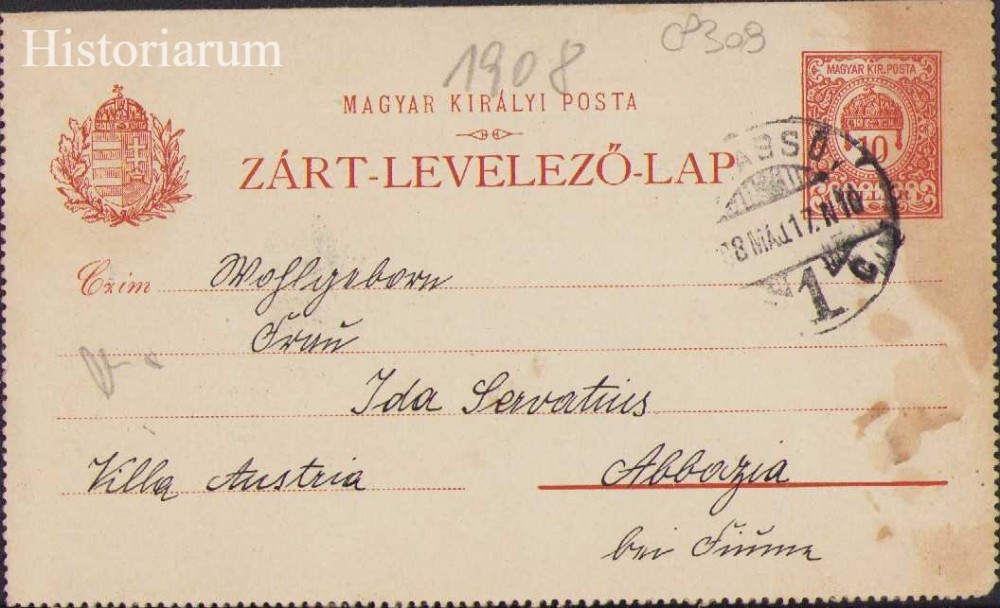 Historiarum
1908
CP309
MAGYAR KIRÁLYI POSTA
ZÁRT-LEVELEZŐ-LAP
MAGYAR KIR. POSTA
10
8 MÁJ 17. N 10
1
Czím
Wohlgeborn
Frau
Ida Servatius
Villa Austria
Abbazia
bei Fiume